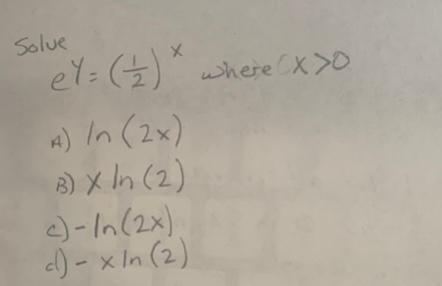 Solve
e^y = (1/2)^x where x>0
A) ln(2x)
B) x ln(2)
c) -ln(2x)
d) - x ln(2)